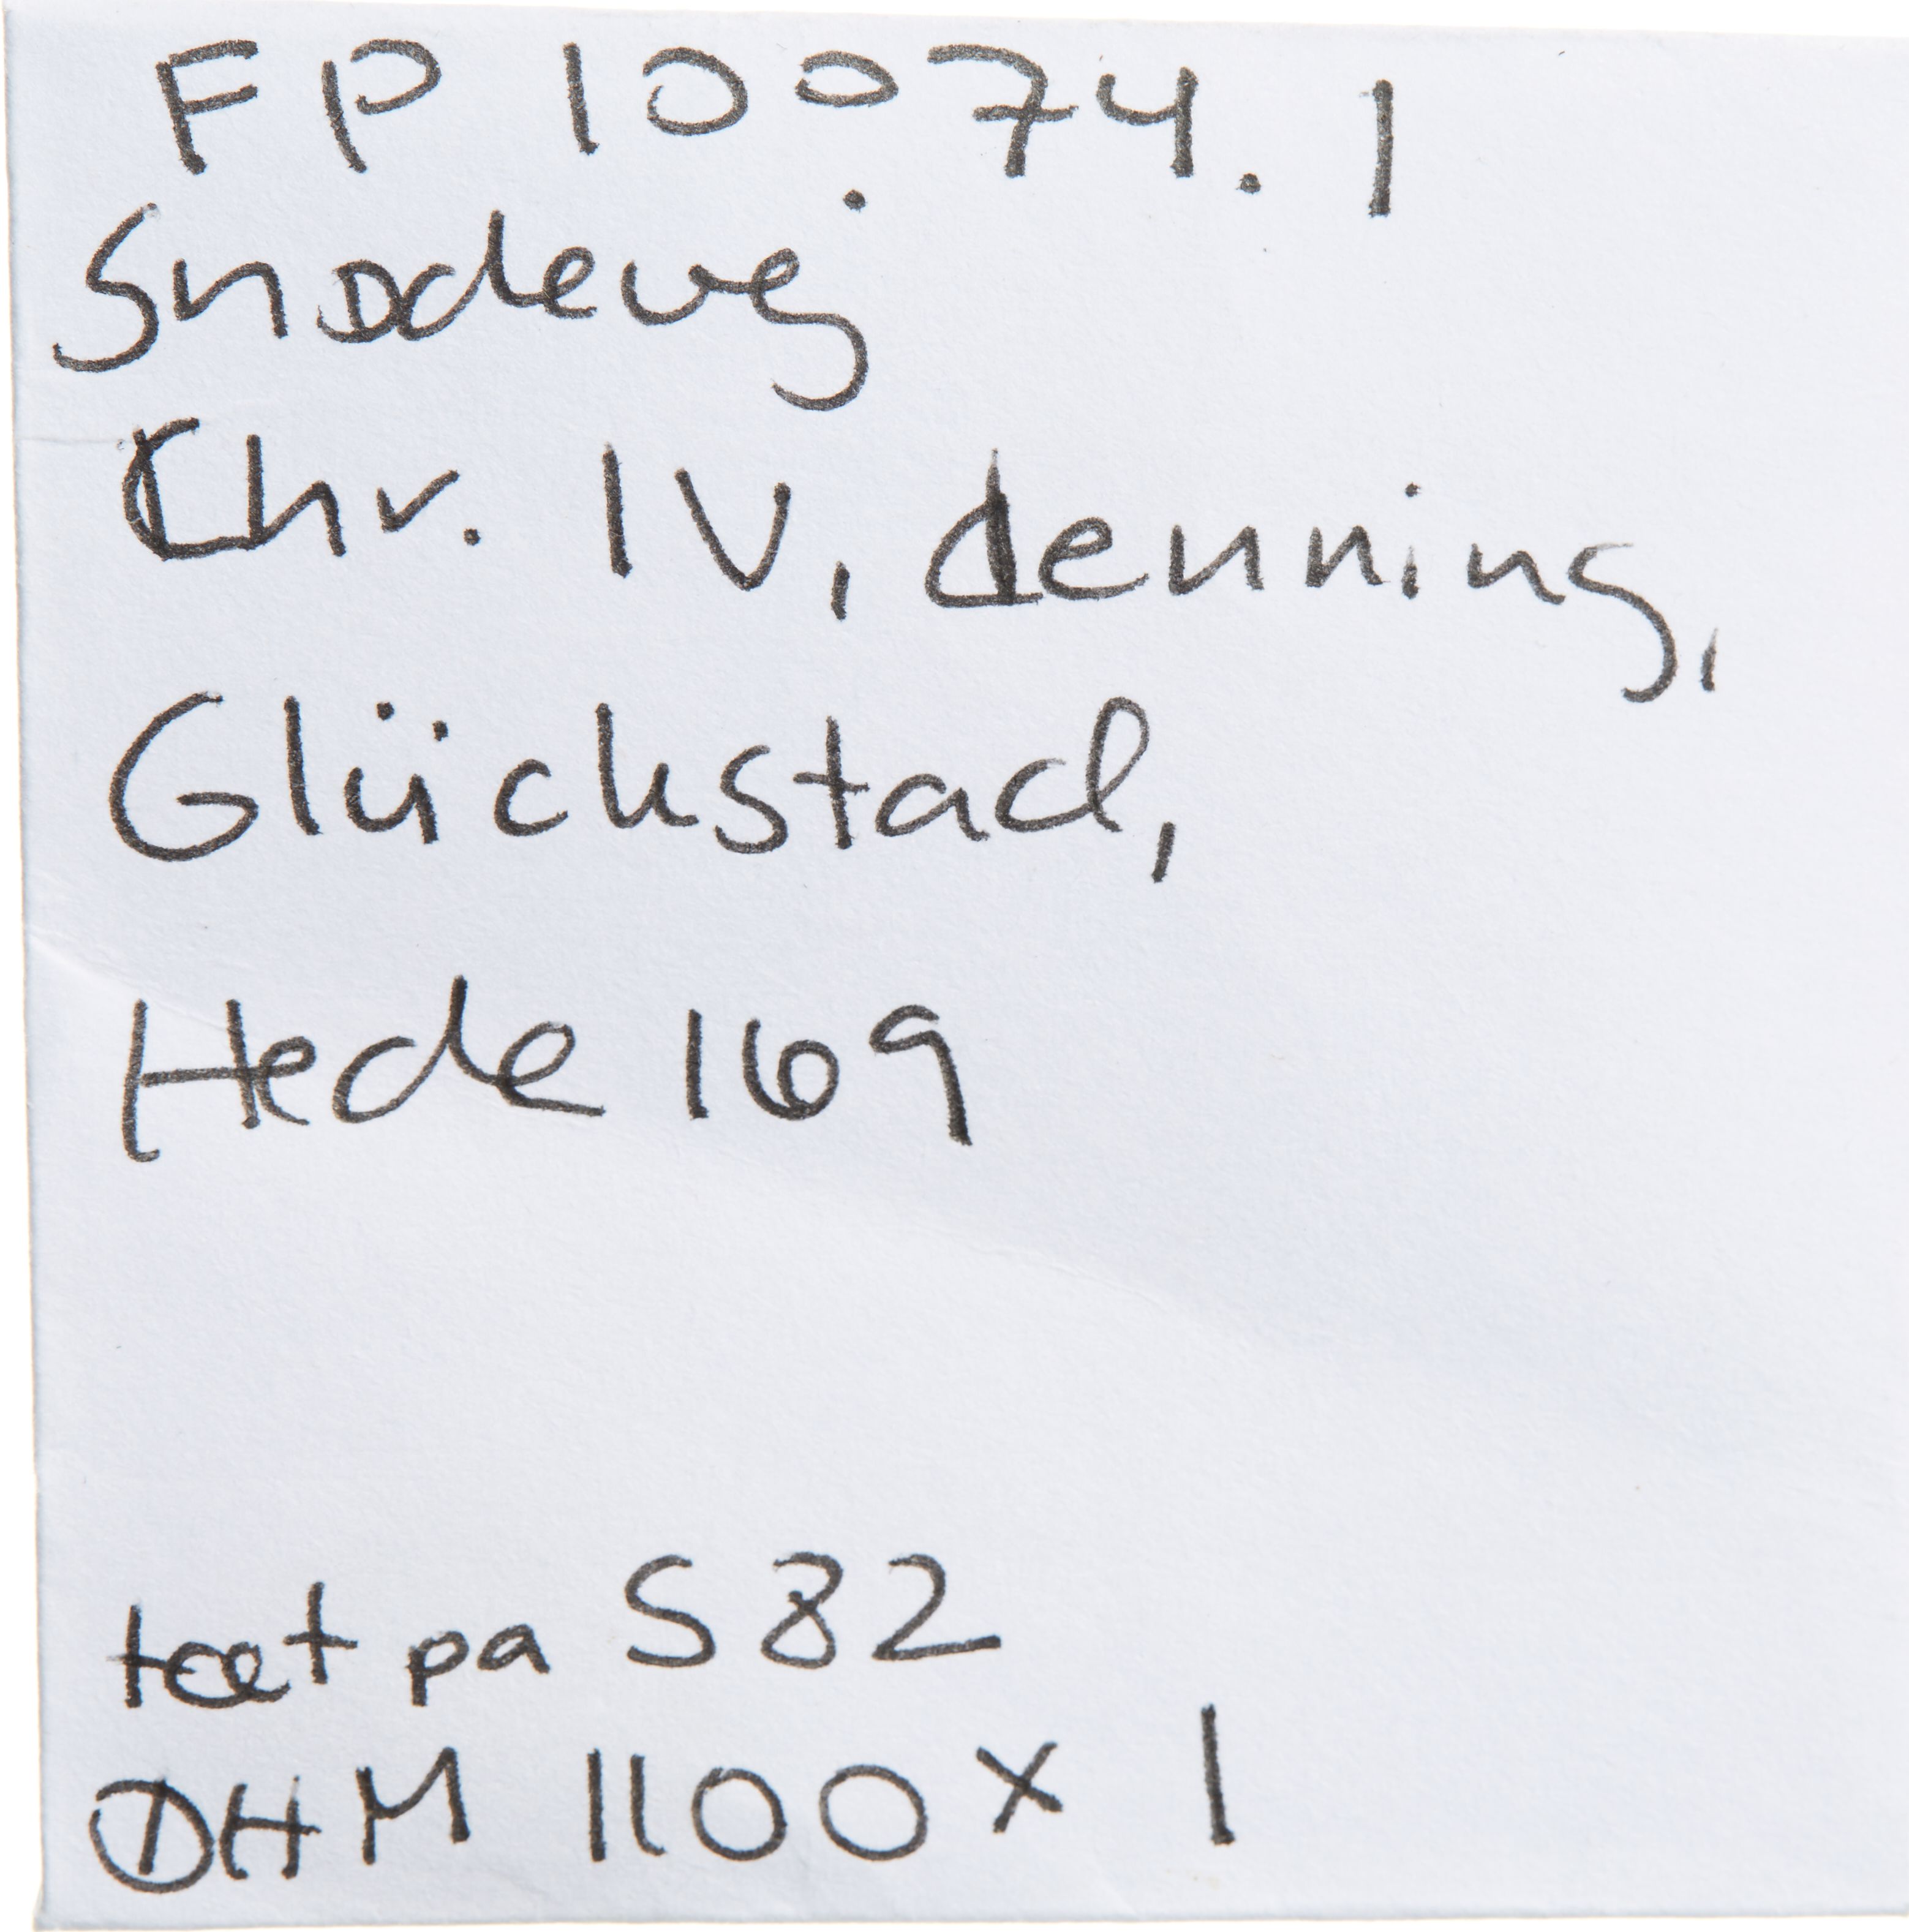 FP 10074.1
Snodevej
Chr. IV, denning,
Glückstad,
Hede 169
tæt pa S82
DHM 1100 x 1